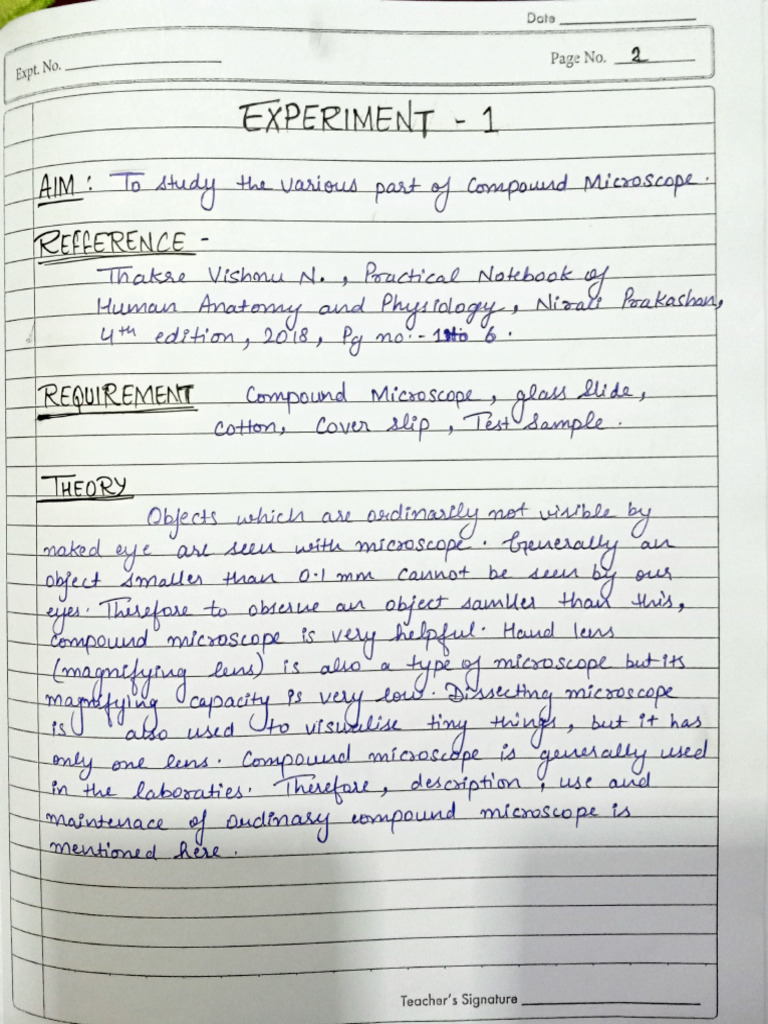 Date
Expt. No.
Page No. 2
EXPERIMENT - 1
AIM : To study the various part of Compound Microscope.
REFFERENCE -
Thakre Vishnu N. , Practical Notebook of
Human Anatomy and Physiology , Nirali Prakashan,
4th edition , 2018 , Pg no:- 1 to 6 .
REQUIREMENT Compound Microscope , glass slide ,
Cotton, Cover slip , Test Sample .
THEORY
Objects which are ordinarily not visible by
naked eye are seen with microscope . Generally an
object smaller than 0.1 mm cannot be seen by our
eyes. Therefore to observe an object samller than this,
compound microscope is very helpful. Hand lens
(magnifying lens) is also a type of microscope but its
magnifying capacity is very low. Dissecting microscope
is also used to visualise tiny things, but it has
only one lens. Compound microscope is generally used
in the laboraties. Therefore , description , use and
maintenace of ordinary compound microscope is
mentioned here .
Teacher's Signature